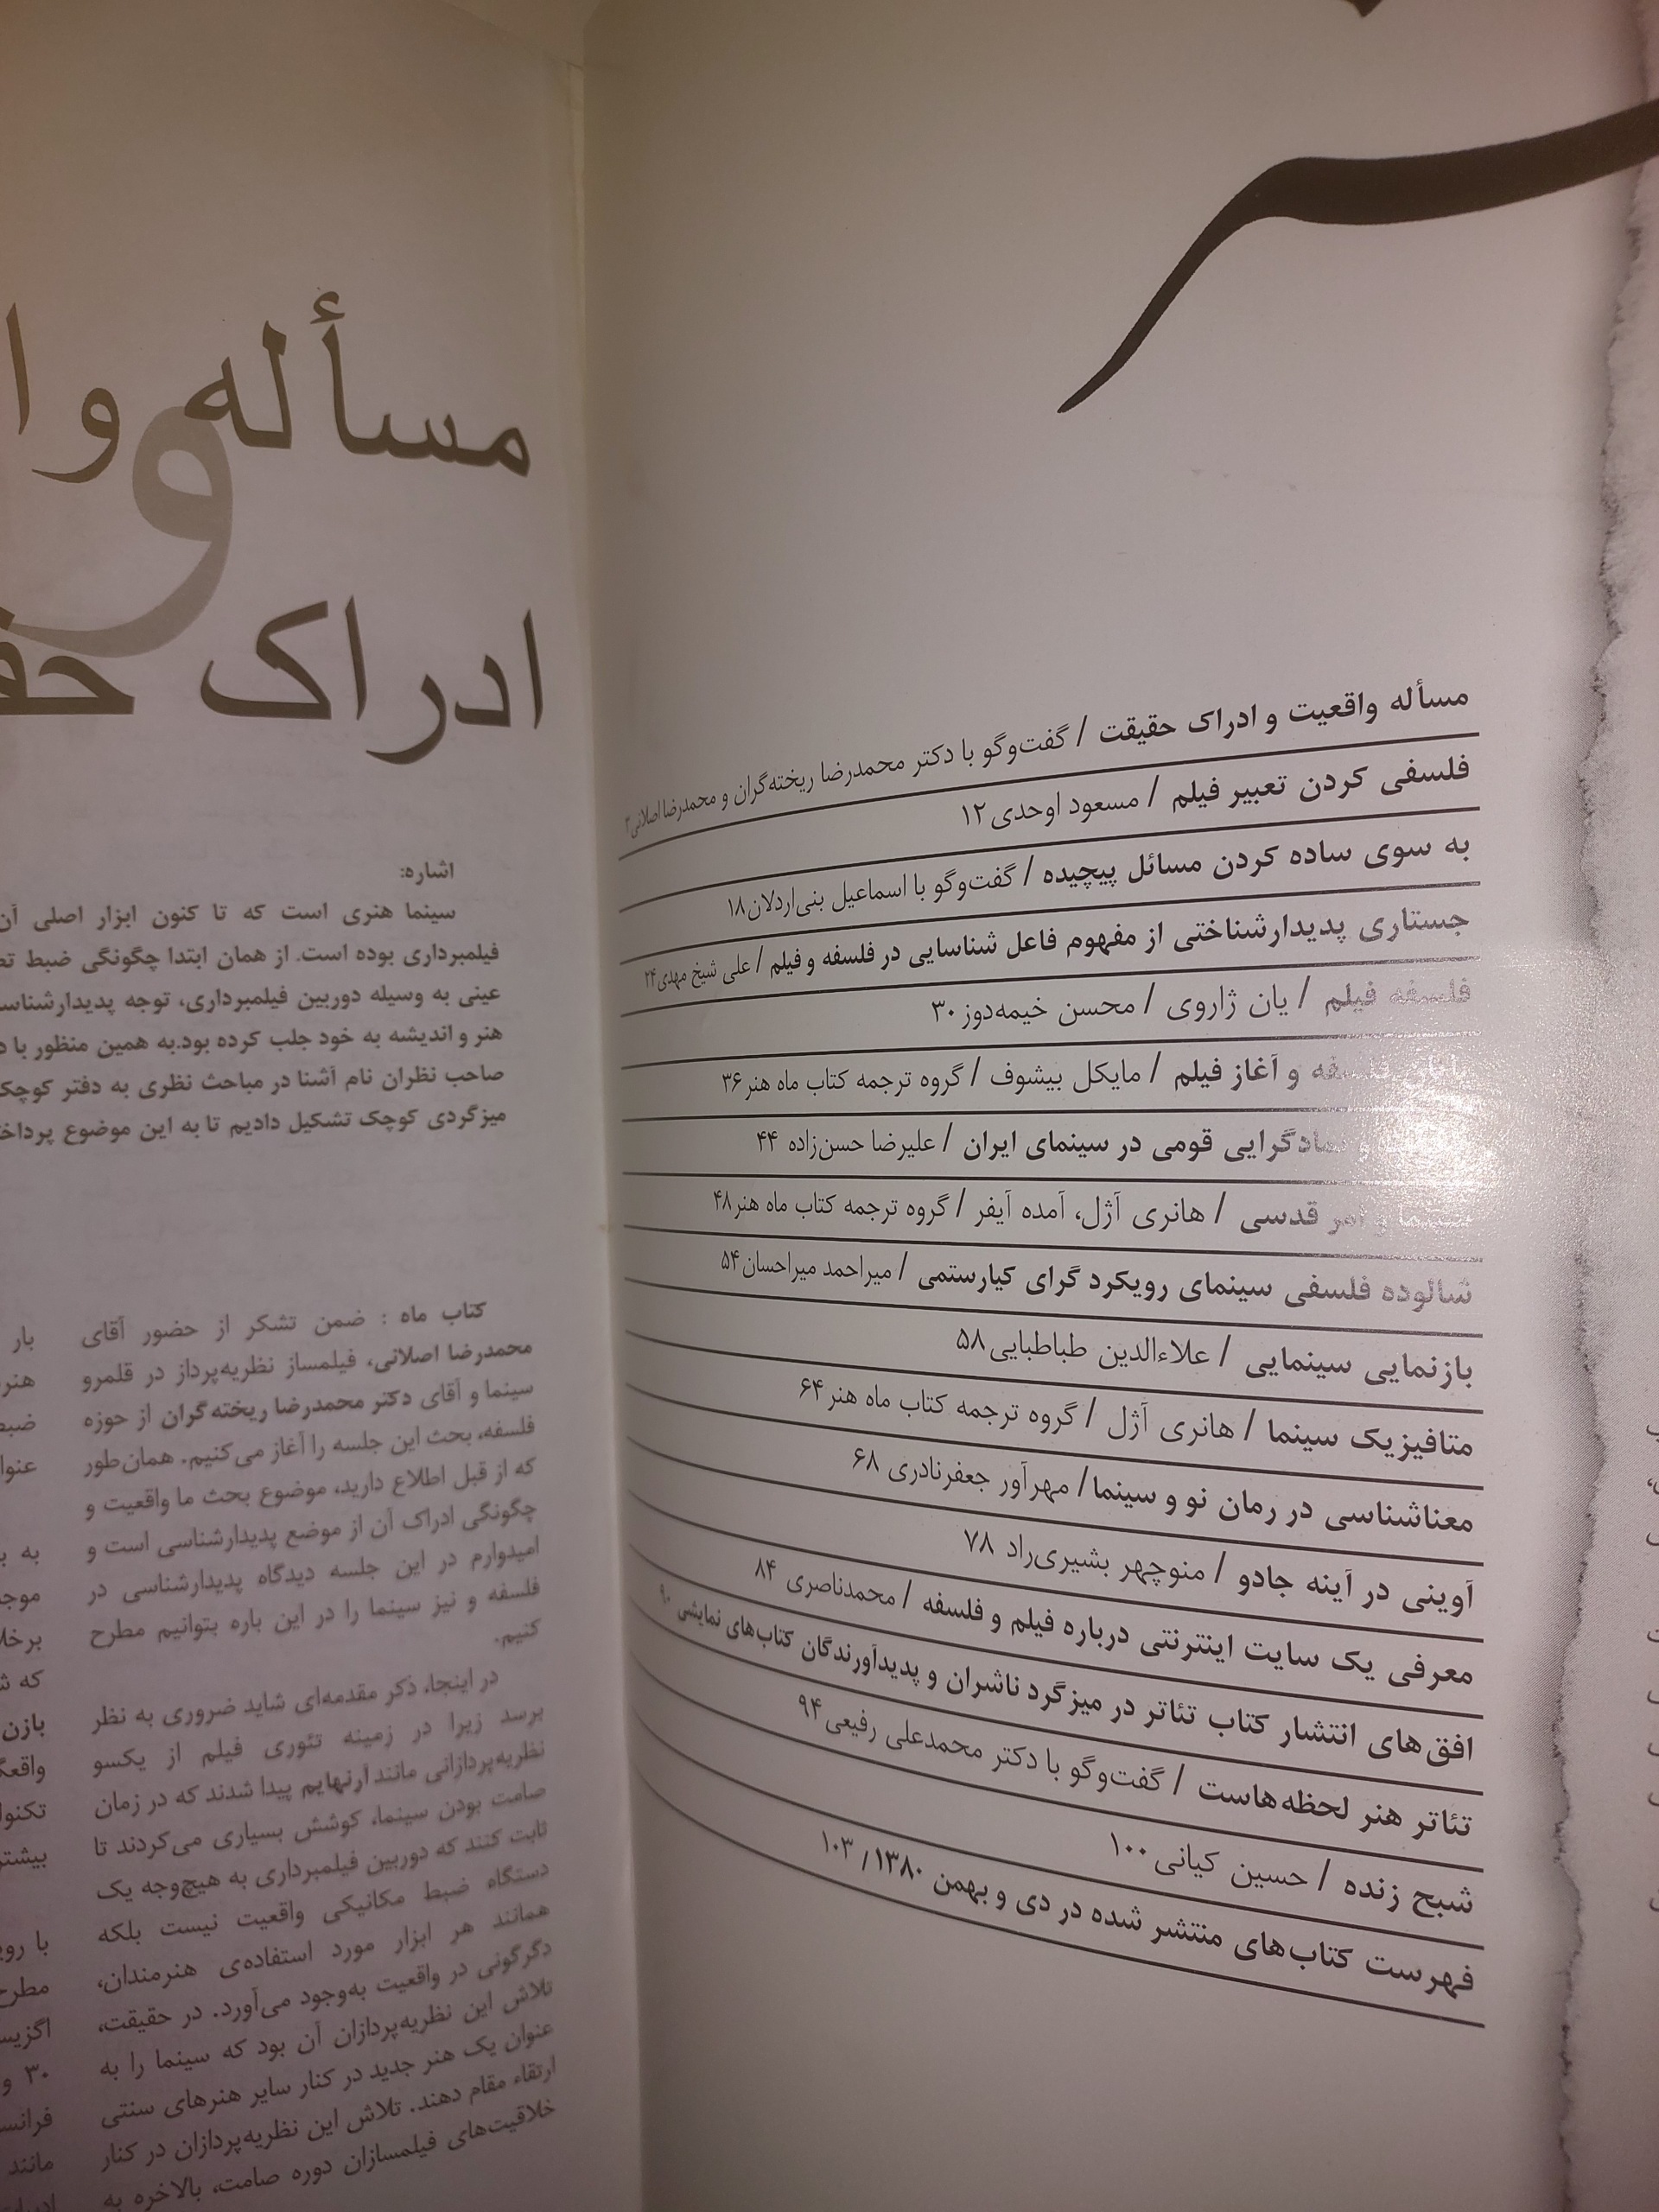 مسأله واقعیت و ادراک حقیقت / گفت‌وگو با دکتر محمدرضا ریخته‌گران و محمدرضا اصلانی ۳
فلسفی کردن تعبیر فیلم / مسعود اوحدی ۱۲
به سوی ساده کردن مسائل پیچیده / گفت‌وگو با اسماعیل بنی‌اردلان ۱۸
جستاری پدیدارشناختی از مفهوم فاعل شناسایی در فلسفه و فیلم / علی شیخ مهدی ۲۴
فلسفه فیلم / یان ژاروی / محسن خیمه‌دوز ۳۰
فلسفه و آغاز فیلم / مایکل بیشوف / گروه ترجمه کتاب ماه هنر ۳۶
و نمادگرایی قومی در سینمای ایران / علیرضا حسن‌زاده ۴۴
سینما و امر قدسی / هانری آژل، آمده آیفر / گروه ترجمه کتاب ماه هنر ۴۸
شالوده فلسفی سینمای رویکرد گرای کیارستمی / میراحمد میراحسان ۵۴
بازنمایی سینمایی / علاءالدین طباطبایی ۵۸
متافیزیک سینما / هانری آژل / گروه ترجمه کتاب ماه هنر ۶۴
معناشناسی در رمان نو و سینما / مهرآور جعفرنادری ۶۸
آوینی در آینه جادو / منوچهر بشیری‌راد ۷۸
معرفی یک سایت اینترنتی درباره فیلم و فلسفه / محمدناصری ۸۴
افق‌های انتشار کتاب تئاتر در میزگرد ناشران و پدیدآورندگان کتاب‌های نمایشی ۹۰
تئاتر هنر لحظه‌هاست / گفت‌وگو با دکتر محمدعلی رفیعی ۹۴
شبح زنده / حسین کیانی ۱۰۰
فهرست کتاب‌های منتشر شده در دی و بهمن ۱۳۸۰ / ۱۰۳
مسأله و
ادراک
اشاره:
سینما هنری است که تا کنون ابزار اصلی آن
فیلمبرداری بوده است. از همان ابتدا چگونگی ضبط
عینی به وسیله دوربین فیلمبرداری، توجه
هنر و اندیشه به خود جلب کرده بود.به همین منظور با
صاحب نظران نام آشنا در مباحث نظری به دفتر
میزگردی کوچک تشکیل دادیم تا به این موضوع
کتاب ماه : ضمن تشکر از حضور آقای
محمدرضا اصلانی، فیلمساز نظریه‌پرداز در قلمرو
سینما و آقای دکتر محمدرضا ریخته‌گران از حوزه
فلسفه، بحث این جلسه را آغاز می‌کنیم. همان‌طور
که از قبل اطلاع دارید، موضوع بحث ما واقعیت و
چگونگی ادراک آن از موضع پدیدارشناسی است و
امیدوارم در این جلسه دیدگاه پدیدارشناسی در
فلسفه و نیز سینما را در این باره بتوانیم مطرح
کنیم.
در اینجا، ذکر مقدمه‌ای شاید ضروری به نظر
برسد زیرا در زمینه تئوری فیلم از یکسو
نظریه‌پردازانی مانند آرنهایم پیدا شدند که در زمان
صامت بودن سینما، کوشش بسیاری می‌کردند تا
ثابت کنند که دوربین فیلمبرداری به هیچ‌وجه یک
دستگاه ضبط مکانیکی واقعیت نیست بلکه
همانند هر ابزار مورد استفاده‌ی هنرمندان،
دگرگونی در واقعیت به‌وجود می‌آورد. در حقیقت،
تلاش این نظریه‌پردازان آن بود که سینما را به
عنوان یک هنر جدید در کنار سایر هنرهای سنتی
ارتقاء مقام دهند. تلاش این نظریه‌پردازان در کنار
خلاقیت‌های فیلمسازان دوره صامت، بالاخره به
بار
به
با
۳۰ و
مانند